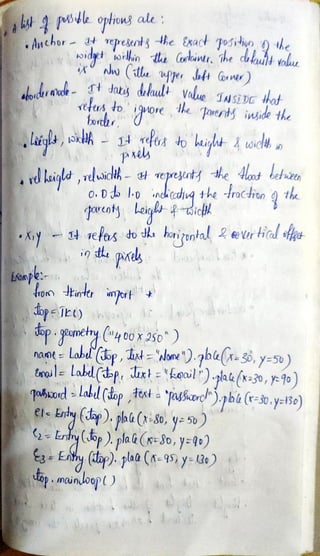 A list of possible options are :
• Anchor - It represents the Exact position of the
widget within the Container. The default value
is NW (the upper left Corner)
• bordermode - It takes default value INSIDE that
refers to ignore the parents inside the
border.
• height, width - It refers to height & width in
pixels
• relheight, relwidth - It represents the float between
0.0 to 1.0 indicating the fraction of the
parents height & width
• x, y - It refers to the horizontal & vertical offset
in the pixels
Example:-
from tkinter import *
top = TK()
top. geometry ("400 x 250")
name = Label (top, text = "Name"). place (x=30, y=50)
Email = Label (top, text = "Email"). place (x=30, y=90)
password = Label (top, text = "password"). place (x=30, y=130)
e1 = Entry (top). place (x=80, y=50)
e2 = Entry (top). place (x=80, y=90)
E3 = Entry (top). place (x=95, y=130)
top. mainloop ()